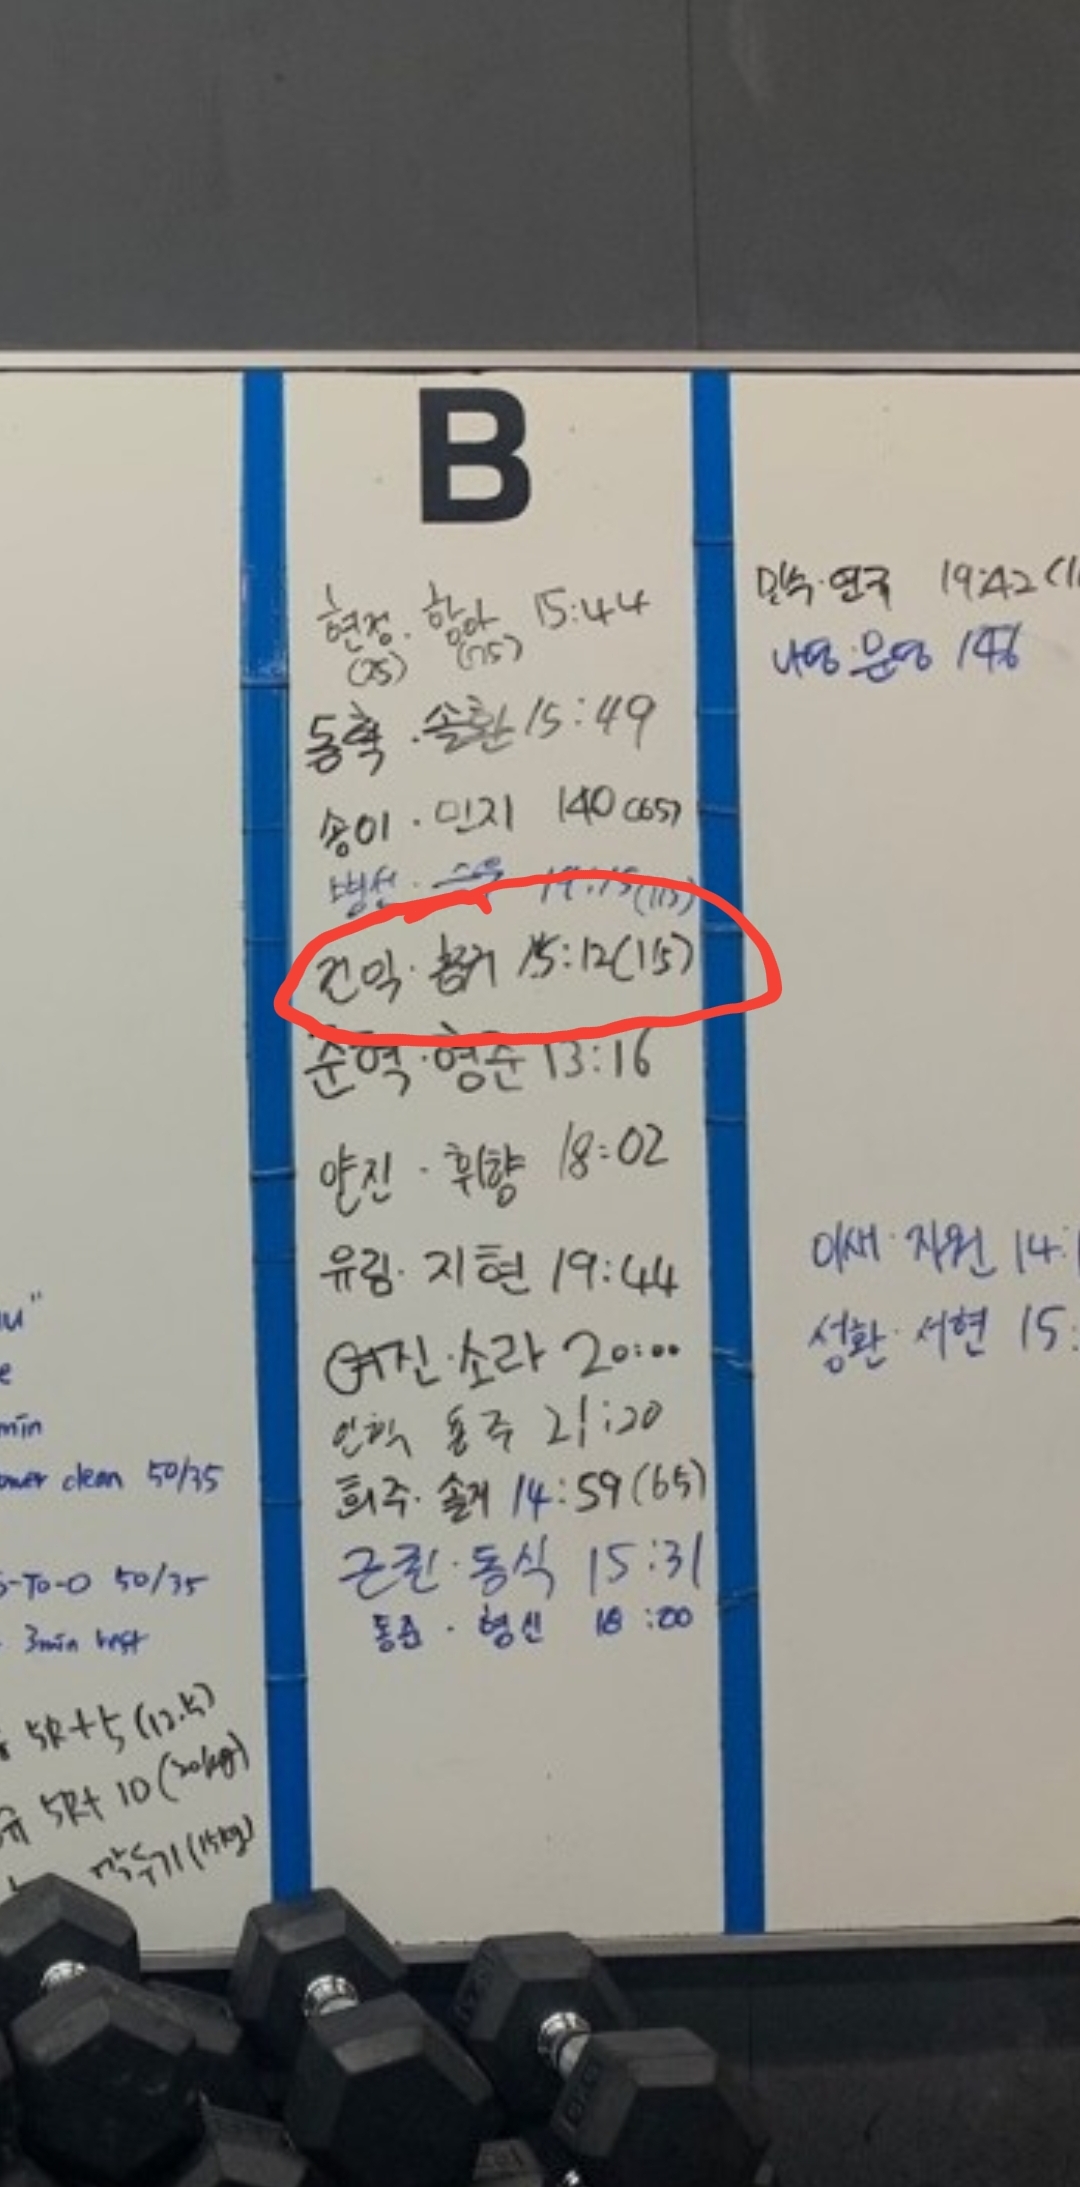 B
현정. 함아 15:44
(75) (75)
동혁. 솔환 15:49
송이. 민지 140 (65)
병선. 19:15(115)
건익. 15:12(115)
준혁. 형준 13:16
얀진. 휘향 18:02
유림. 지현 19:44
여진. 소라 20:00
인혁 동주 21:20
희주. 솔지 14:59(65)
근린. 동식 15:31
동준. 형신 18:00
민숙. 연국 19:42(
나영. 운영 146
이새. 지원 14:
성환. 서현 15:
min
clean 50/35
S-TO-O 50/35
3min rest
5R+5 (12.5)
5R+ 10 (20kg)
(15kg)